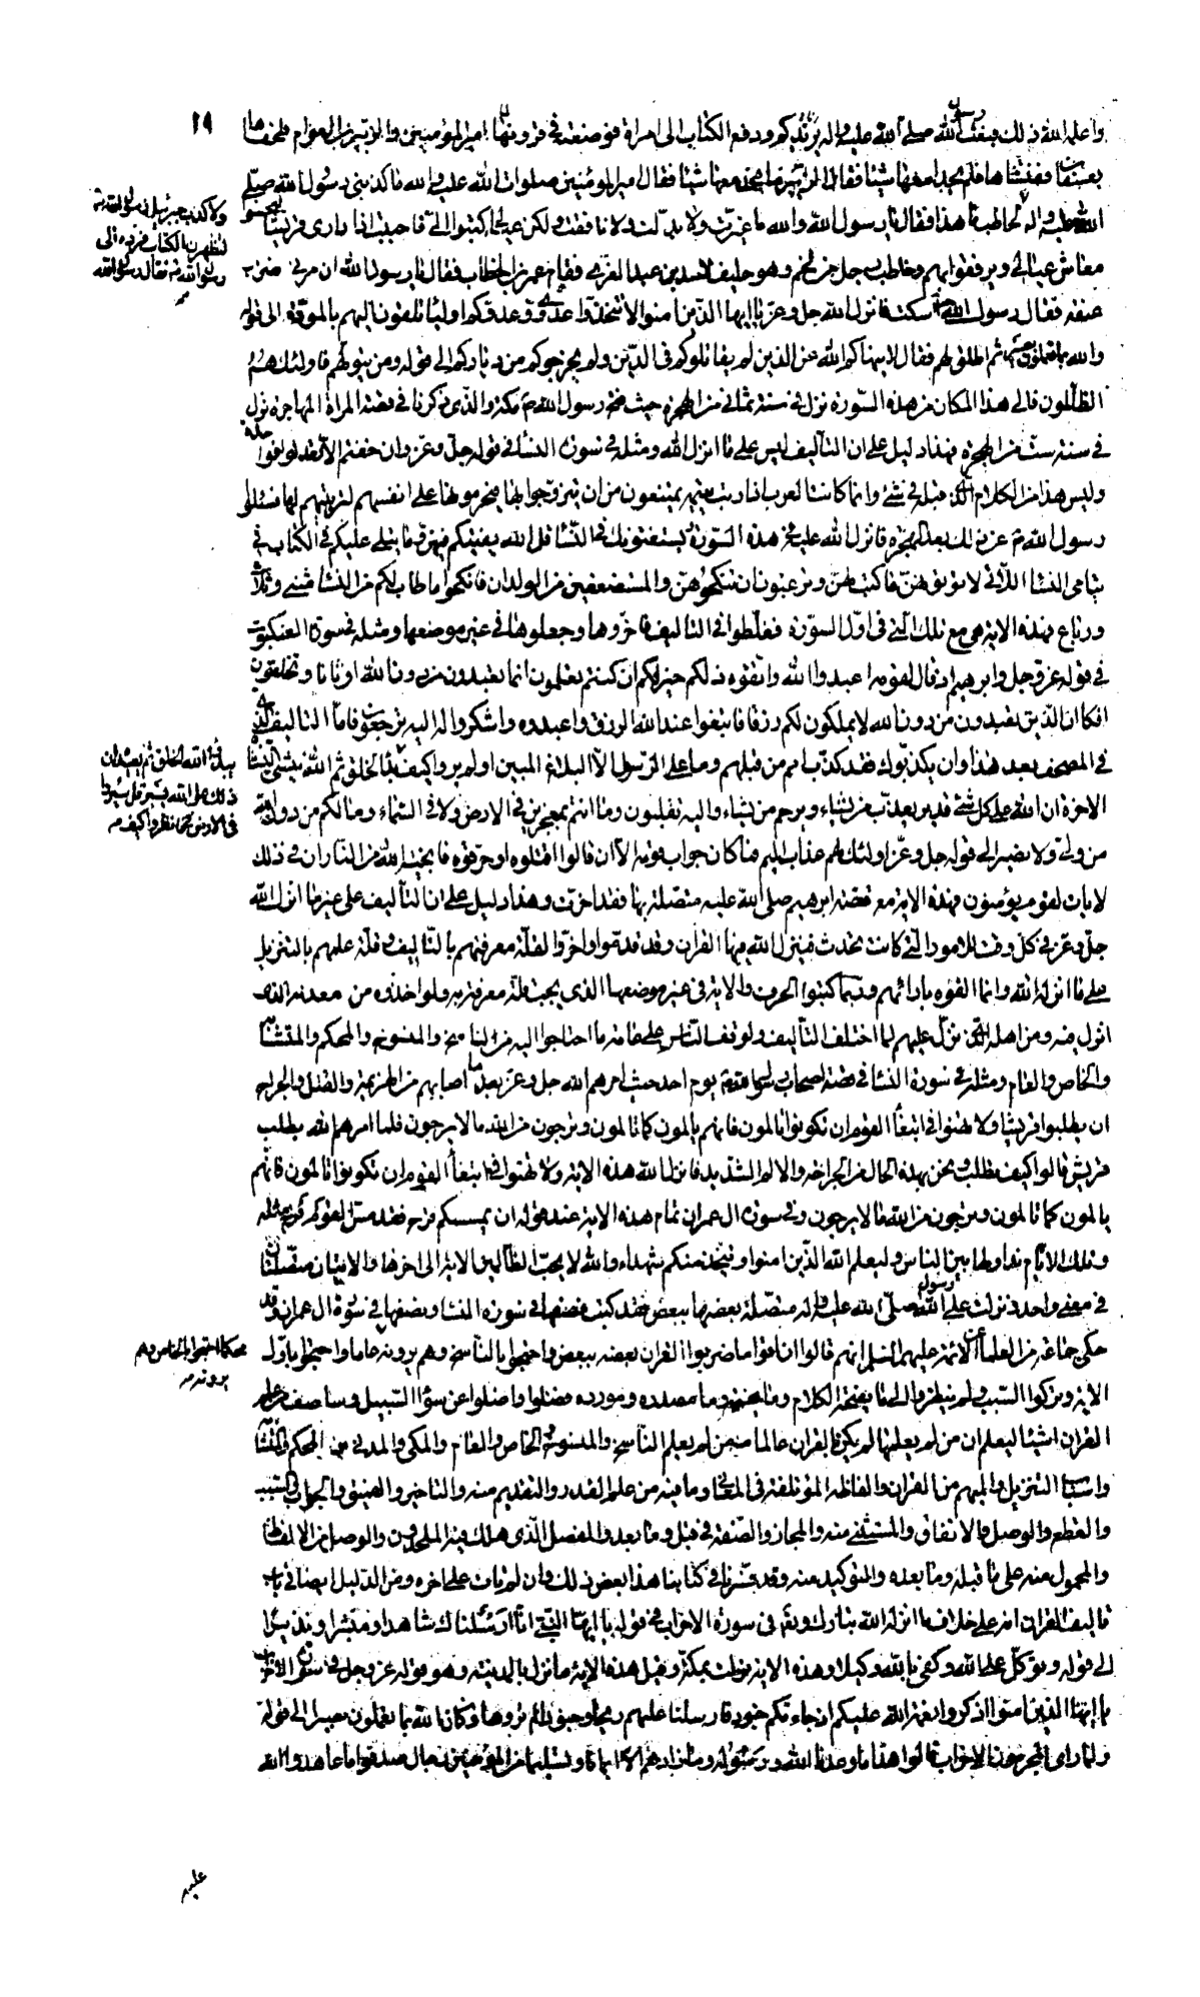 ١٩
واعلم الله ذلك فبعث رسول الله صلى الله عليه واله يريدكم ودفع الكتاب الى امراة فوضعته في قرونها امير المؤمنين والزبير بن العوام فلحقاها
ففتشاها فلم يجدا معها شيئا فقال الزبير ما نجد معها شيئا فقال امير المؤمنين صلوات الله عليه والله ما كذبني رسول الله صلى
الله عليه واله لحاطب ما هذا فقال يا رسول الله والله ما غيرت ولا بدلت ولا نافقت ولكن عيالي كتبوا الي فاحببت ان اداري قريشا ليحسنوا
معاش عيالي ويرفقوا بهم وحاطب رجل من لخم وهو حليف لاسد بن عبد العزى فقام عمر بن الخطاب فقال يا رسول الله ان مرني اضرب
عنقه فقال رسول الله اسكت فانزل الله جل وعز يا ايها الذين امنوا لا تتخذوا عدوي وعدوكم اولياء تلقون اليهم بالمودة الى قوله
والله بما تعملون بصير ثم اطلق لهم فقال لا ينهاكم الله عن الذين لم يقاتلوكم في الدين ولم يخرجوكم من دياركم الى قوله ومن يتولهم فاولئك هم
الظالمون فالى هذا المكان من هذه السورة نزل في سنة ثماني من الهجرة حيث فتح رسول الله ص مكة والذي ذكرنا في قصة المراة المهاجرة نزل
في سنة ست من الهجرة فهذا دليل على ان التأليف ليس على ما انزل الله ومثله في سورة النساء في قوله جل وعز وان خفتم الا تعدلوا فواحدة
وليس هذا من الكلام الذي قبله في شيء وانما كانت العرب اذا ربت يتيمة يمتنعون من ان يتزوجوا بها فيحرمونها على انفسهم لتربيتهم لها فسئلوا
رسول الله ص عن ذلك بعد الهجرة فانزل الله عليه في هذه السورة يستفتونك في النساء قل الله يفتيكم فيهن وما يتلى عليكم في الكتاب في
يتامى النساء اللاتي لا تؤتونهن ما كتب لهن وترغبون ان تنكحوهن والمستضعفين من الولدان فانكحوا ما طاب لكم من النساء مثنى وثلاث
ورباع فهذه الاية هي مع تلك التي في اول السورة فغلطوا في التاليف فاخروها وجعلوها في غير موضعها ومثله في سورة العنكبوت
في قوله عز وجل وابرهيم اذ قال لقومه اعبدوا الله واتقوه ذلكم خير لكم ان كنتم تعلمون انما تعبدون من دون الله اوثانا وتخلقون
افكا ان الذين تعبدون من دون الله لا يملكون لكم رزقا فابتغوا عند الله الرزق واعبدوه واشكروا له اليه ترجعون فاما التاليف الذي
في المصحف بعد هذا وان يكذبوك فقد كذب امم من قبلهم وما على الرسول الا البلاغ المبين اولم يروا كيف بدأ الخلق ثم الله ينشئ النشأة
الاخرة ان الله على كل شئ قدير يعذب من يشاء ويرحم من يشاء واليه تقلبون وما انتم بمعجزين في الارض ولا في السماء وما لكم من دون الله
من ولي ولا نصير الى قوله جل وعز اولئك لهم عذاب اليم فما كان جواب قومه الا ان قالوا اقتلوه او حرقوه فانجيه الله من النار ان في ذلك
لايات لقوم يؤمنون فهذه الاية مع قصة ابرهيم صلى الله عليه متصلة بها فقد اخرت وهذا دليل على ان التأليف على غير ما انزل الله
جل وعز في كل وقت للامور التي كانت تحدث فينزل الله فيها القران وقد قدموا واخروا لقلة معرفتهم بالتاليف وقلة علمهم بالتنزيل
على ما انزله الله وانما الفوه بارائهم وربما كتبوا الحرف والاية في غير موضعها الذي يجب قلة معرفة به ولو اخذوه من معدنه الذي
انزل فيه ومن اهله الذي نزل عليهم لما اختلف التأليف ولوقف الناس على عامة ما احتاجوا اليه من الناسخ والمنسوخ والمحكم والمتشابه
والخاص والعام ومثله في سورة النساء في قصة اصحاب رسول الله ص يوم احد حيث امرهم الله جل وعز بعد ما اصابهم من الهزيمة والقتل والجراح
ان يطلبوا قريشا ولا تهنوا في ابتغاء القوم ان تكونوا تألمون فانهم يألمون كما تألمون وترجون من الله ما لا يرجون فلما امرهم الله بطلب
قريش قالوا كيف نطلب ونحن بهذه الحال من الجراحة والالم الشديد فانزل الله هذه الاية ولا تهنوا في ابتغاء القوم ان تكونوا تألمون فانهم
يألمون كما تألمون وترجون من الله ما لا يرجون وفي سورة ال عمران تمام هذه الاية عند قوله ان يمسسكم قرح فقد مس القوم قرح مثله
وتلك الايام نداولها بين الناس وليعلم الله الذين امنوا ويتخذ منكم شهداء والله لا يحب الظالمين الاية الى اخرها والايتان متصلتان
في معنى واحد نزلت على رسول الله صلى الله عليه واله متصلة بعضها ببعض فقد كتب نصفها في سورة النساء ونصفها في سورة ال عمران وقد
حكى جماعة من العلماء عن الائمة عليهم السلم انهم قالوا ان اقواما ضربوا القران بعضه ببعض واحتجوا بالناسخ وهم يرونه عاما واحتجوا باول
الاية وتركوا السبب ولم ينظروا الى ما يفتحه الكلام وما يختمه وما مصدره ومورده فضلوا واضلوا عن سواء السبيل وساصف من علم
القران اشياء ليعلم ان من لم يعلمها لم يكن بالقران عالما من لم يعلم الناسخ والمنسوخ والخاص والعام والمكي والمدني والمحكم والمتشابه
واسباب التنزيل والمبهم من القران والفاظه المؤتلفة في المعاني وما فيه من علم القدر والتقديم منه والتاخير والعمق والجواب والسبب
والقطع والوصل والاتفاق والمستثنى منه والمجاز والصفة في قبل وما بعد والمفصل الذي هلك فيه الملحدون والوصل من الالفاظ
والمحمول منه على ما قبله وما بعده والتوكيد منه وقد فسرنا في كتابنا هذا بعض ذلك وان لم نات على اخره ومن الدليل ايضا في باب
تاليف القران انه على خلاف ما انزله الله تبارك وتعالى في سورة الاحزاب في قوله يا ايها النبي انا ارسلناك شاهدا ومبشرا ونذيرا
الى قوله وتوكل على الله وكفى بالله وكيلا وهذه الاية نزلت بمكة وقبل هذه الاية ما نزل بالمدينة وهو قوله عز وجل في سورة الاحزاب
يا ايها الذين امنوا اذكروا نعمة الله عليكم اذ جاءتكم جنود فارسلنا عليهم ريحا وجنودا لم تروها وكان الله بما تعملون بصيرا الى قوله
ولما راى المؤمنون الاحزاب قالوا هذا ما وعدنا الله ورسوله وما زادهم الا ايمانا وتسليما من المؤمنين رجال صدقوا ما عاهدوا الله
ولا كذب جبرئيل رسول الله ص
لتظهرن الكتاب فرده الى
رسول الله ص فقال رسول الله
يبدئ الله الخلق ثم يعيده ان
ذلك على الله يسير قل سيروا
في الارض فانظروا كيف
واحتجوا بالخاص وهم
يرونه
عليه